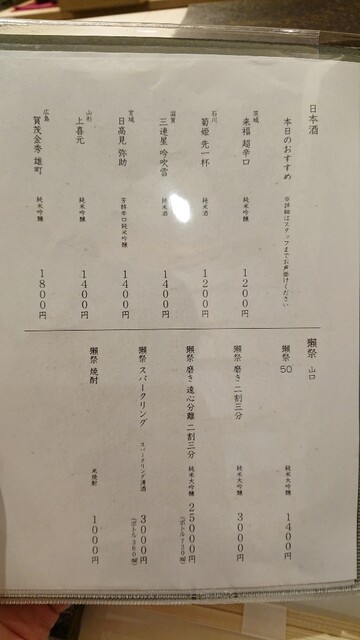 日本酒
本日のおすすめ ※詳細はスタッフまでお声掛けください
茨城
来福 超辛口 純米吟醸 1200円
石川
菊姫 先一杯 純米酒 1200円
滋賀
三連星 吟吹雪 純米酒 1400円
宮城
日高見 弥助 芳醇辛口純米吟醸 1400円
山形
上喜元 純米吟醸 1400円
広島
賀茂金秀 雄町 純米吟醸 1800円
獺祭 山口
獺祭 50 純米大吟醸 1400円
獺祭 磨き二割三分 純米大吟醸 3000円
獺祭 磨き遠心分離 二割三分 純米大吟醸 25000円
(ボトル720㎖)
獺祭 スパークリング スパークリング清酒 3000円
(ボトル360㎖)
獺祭 焼酎 米焼酎 1000円